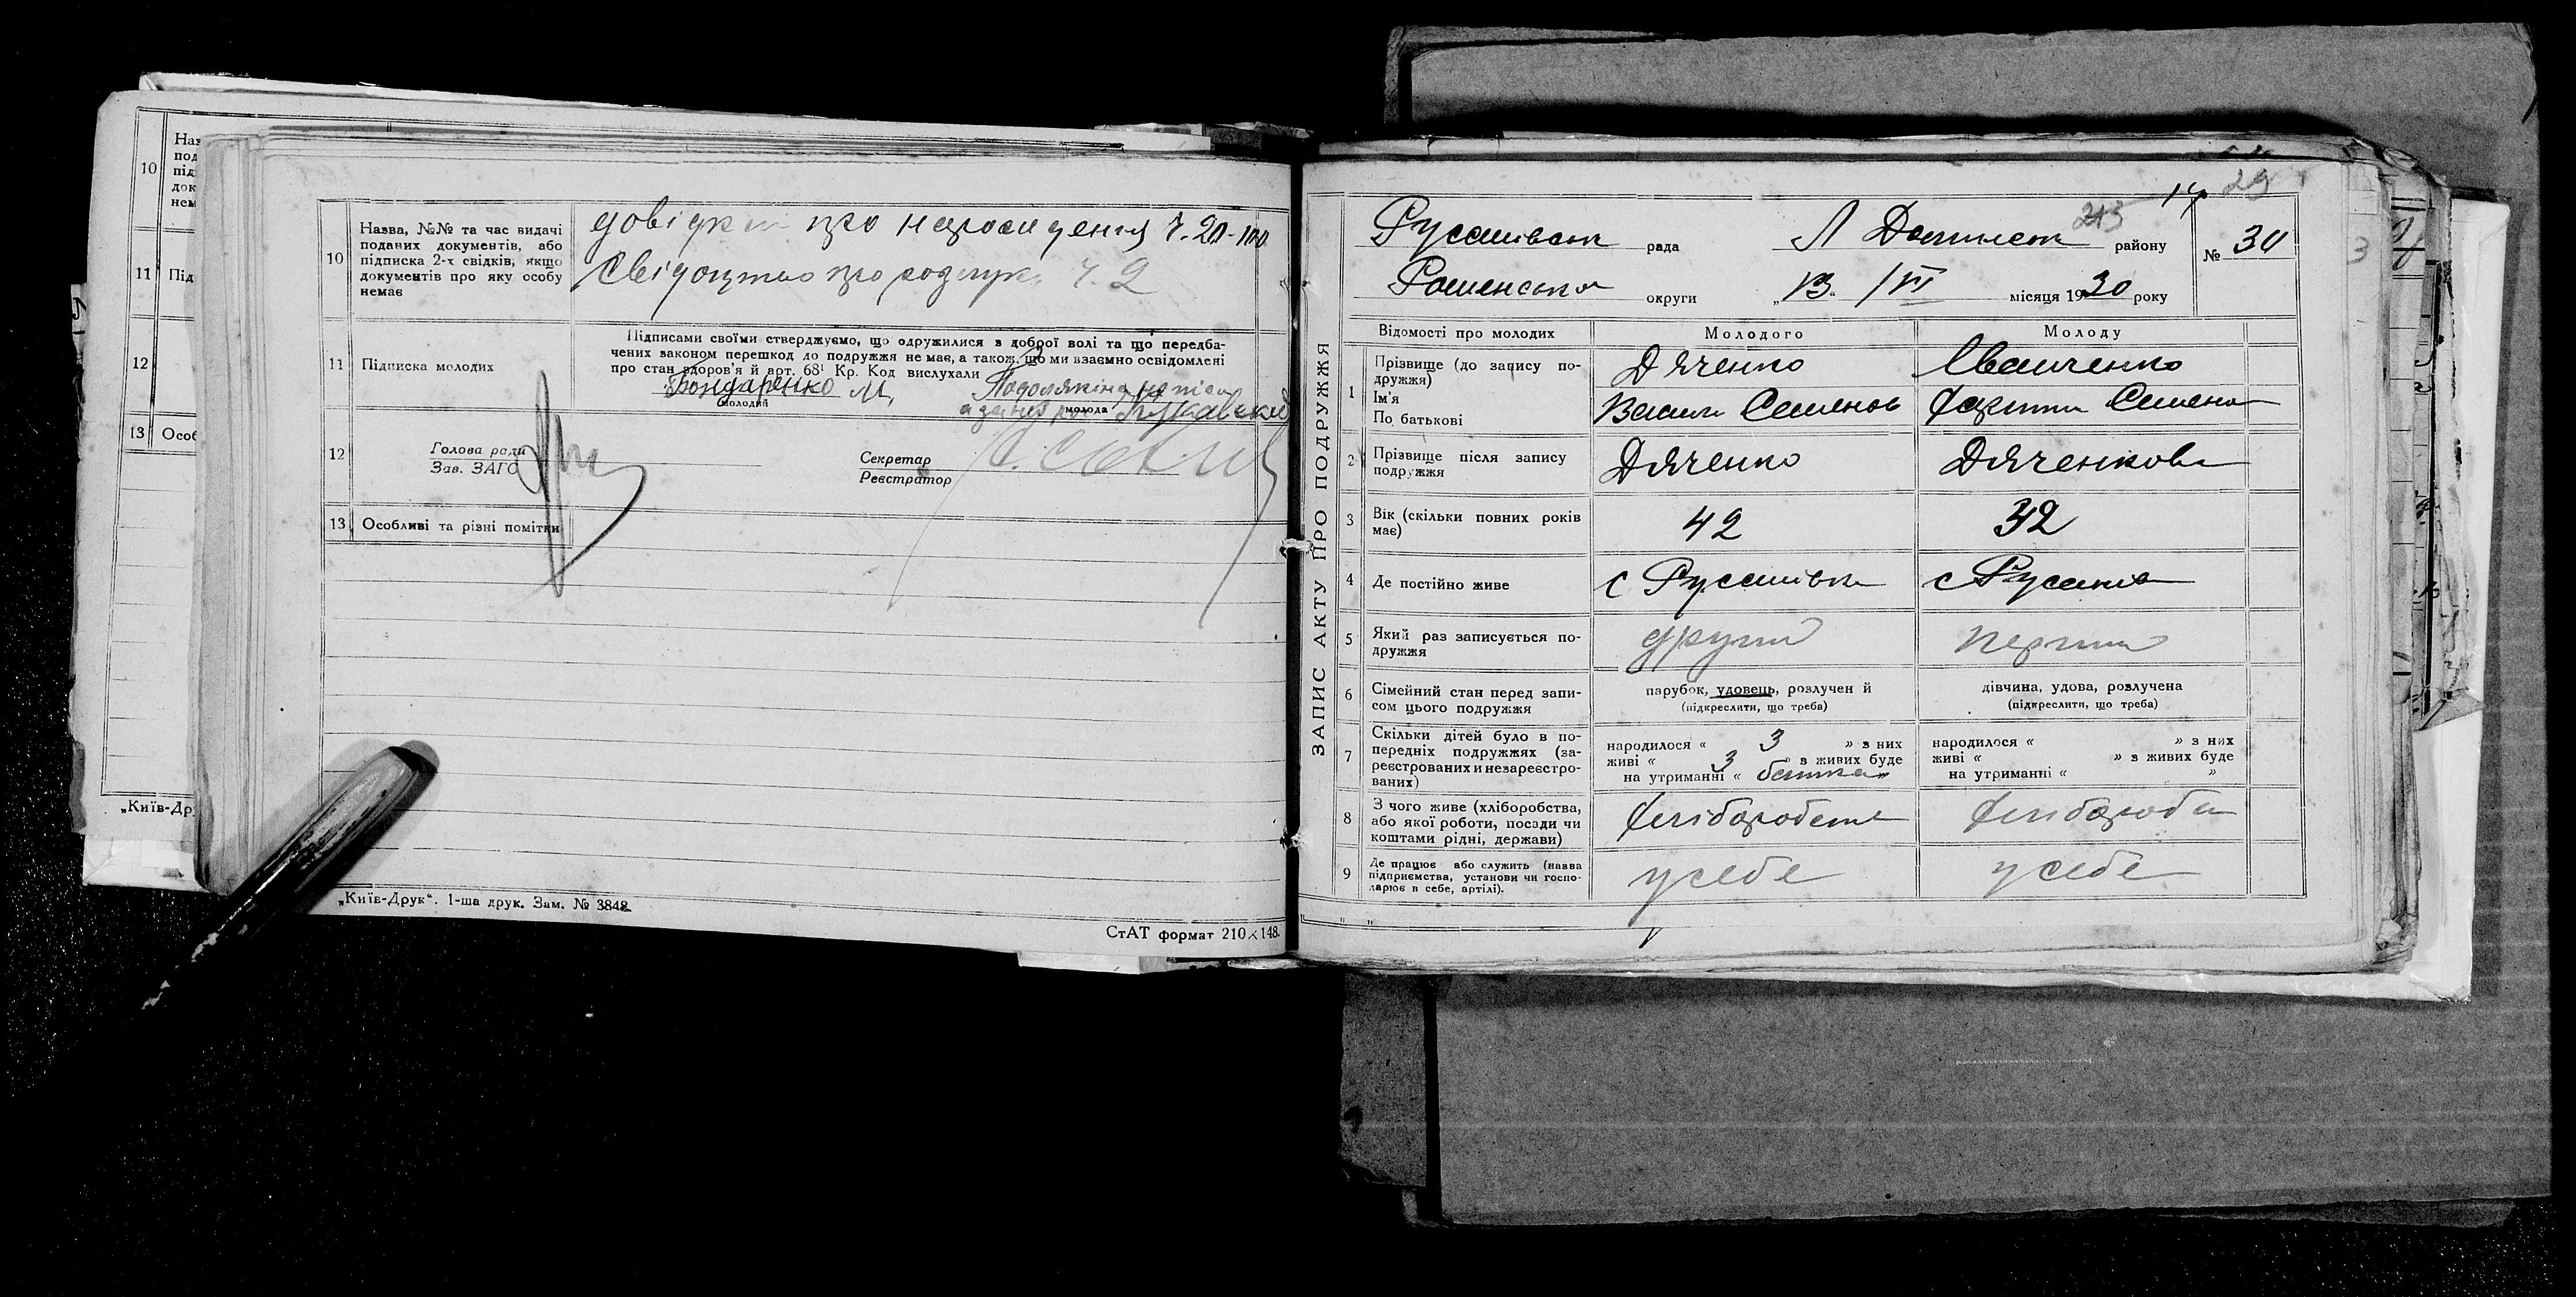 10
Наз
под
під
док
нем
11 Під
12
13 Особ
„Київ-Др
10
Назва, №№ та час видачі
поданих документів, або
підписка 2-х свідків, якщо
документів про яку особу
немає
довідки про народження Ч. 20-100
Свідоцтво про розлуку Ч. 2
11 Підписка молодих
Підписами своїми стверджуємо, що одружилися з доброї волі та що передба-
чених законом перешкод до подружжя не має, а також, що ми взаємно освідомлені
про стан здоров'я й арт. 68¹ Кр. Код вислухали
Бондаренко М,
молодий молода
12
Голова ради
Зав. ЗАГС
Секретар
Реєстратор
13 Особливі та різні помітки
„Київ-Друк“. 1-ша друк. Зам. № 3848
СтАТ формат 210×148.
ЗАПИС АКТУ ПРО ПОДРУЖЖЯ
29
213
Русанівськ рада Л Долинськ району
№ 30
Роменська округи „13“ /VI місяця 1930 року
Відомості про молодих Молодого Молоду
1
Прізвище (до запису по-
дружжя)
Ім'я
По батькові
Дяченко Іванченко
Василь Семенов Семено
2 Прізвище після запису
подружжя
Дяченко Дяченкова
3 Вік (скільки повних років
має)
42 32
4 Де постійно живе с Русанівка с Русанів
5 Який раз записується по-
дружжя
другий перший
6 Сімейний стан перед запи-
сом цього подружжя
парубок, удовець, розлучен й
(підкреслити, що треба)
дівчина, удова, розлучена
(підкреслити, що треба)
7
Скільки дітей було в по-
передніх подружжях (за-
реєстрованих и незареєстро-
ваних)
народилося « 3 » з них
живі « 3 » з живих буде
на утриманні « батька »
народилося « » з них
живі « » з живих буде
на утриманні « »
8
З чого живе (хліборобства,
або якої роботи, посади чи
коштами рідні, держави)
хліборобства хлібороби
9
Де працює або служить (назва
підприємства, установи чи госпо-
дарює в себе, артілі).
у себе у себе